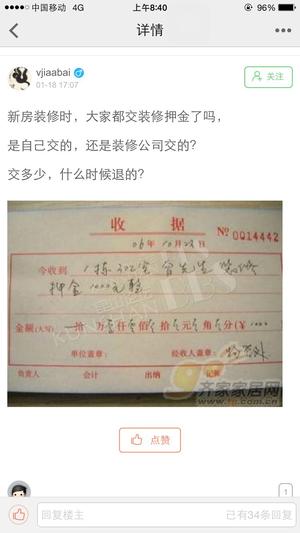 中国移动 4G
上午8:40
96%
详情
vjiaabai
01-18 17:07
关注
新房装修时，大家都交装修押金了吗，
是自己交的，还是装修公司交的？
交多少，什么时候退的？
收据
06年10月23日
№0014442
今收到 1栋302室曾先生装修
押金1000元整
金额(大写) 拾 万 壹仟 零佰 零拾 零元 零角 零分(￥1000
单位盖章： 经收人盖章：
负责人 会计 出纳 记账
KUN
BBS
齐家家居网
点赞
1
回复楼主
已有34条回复